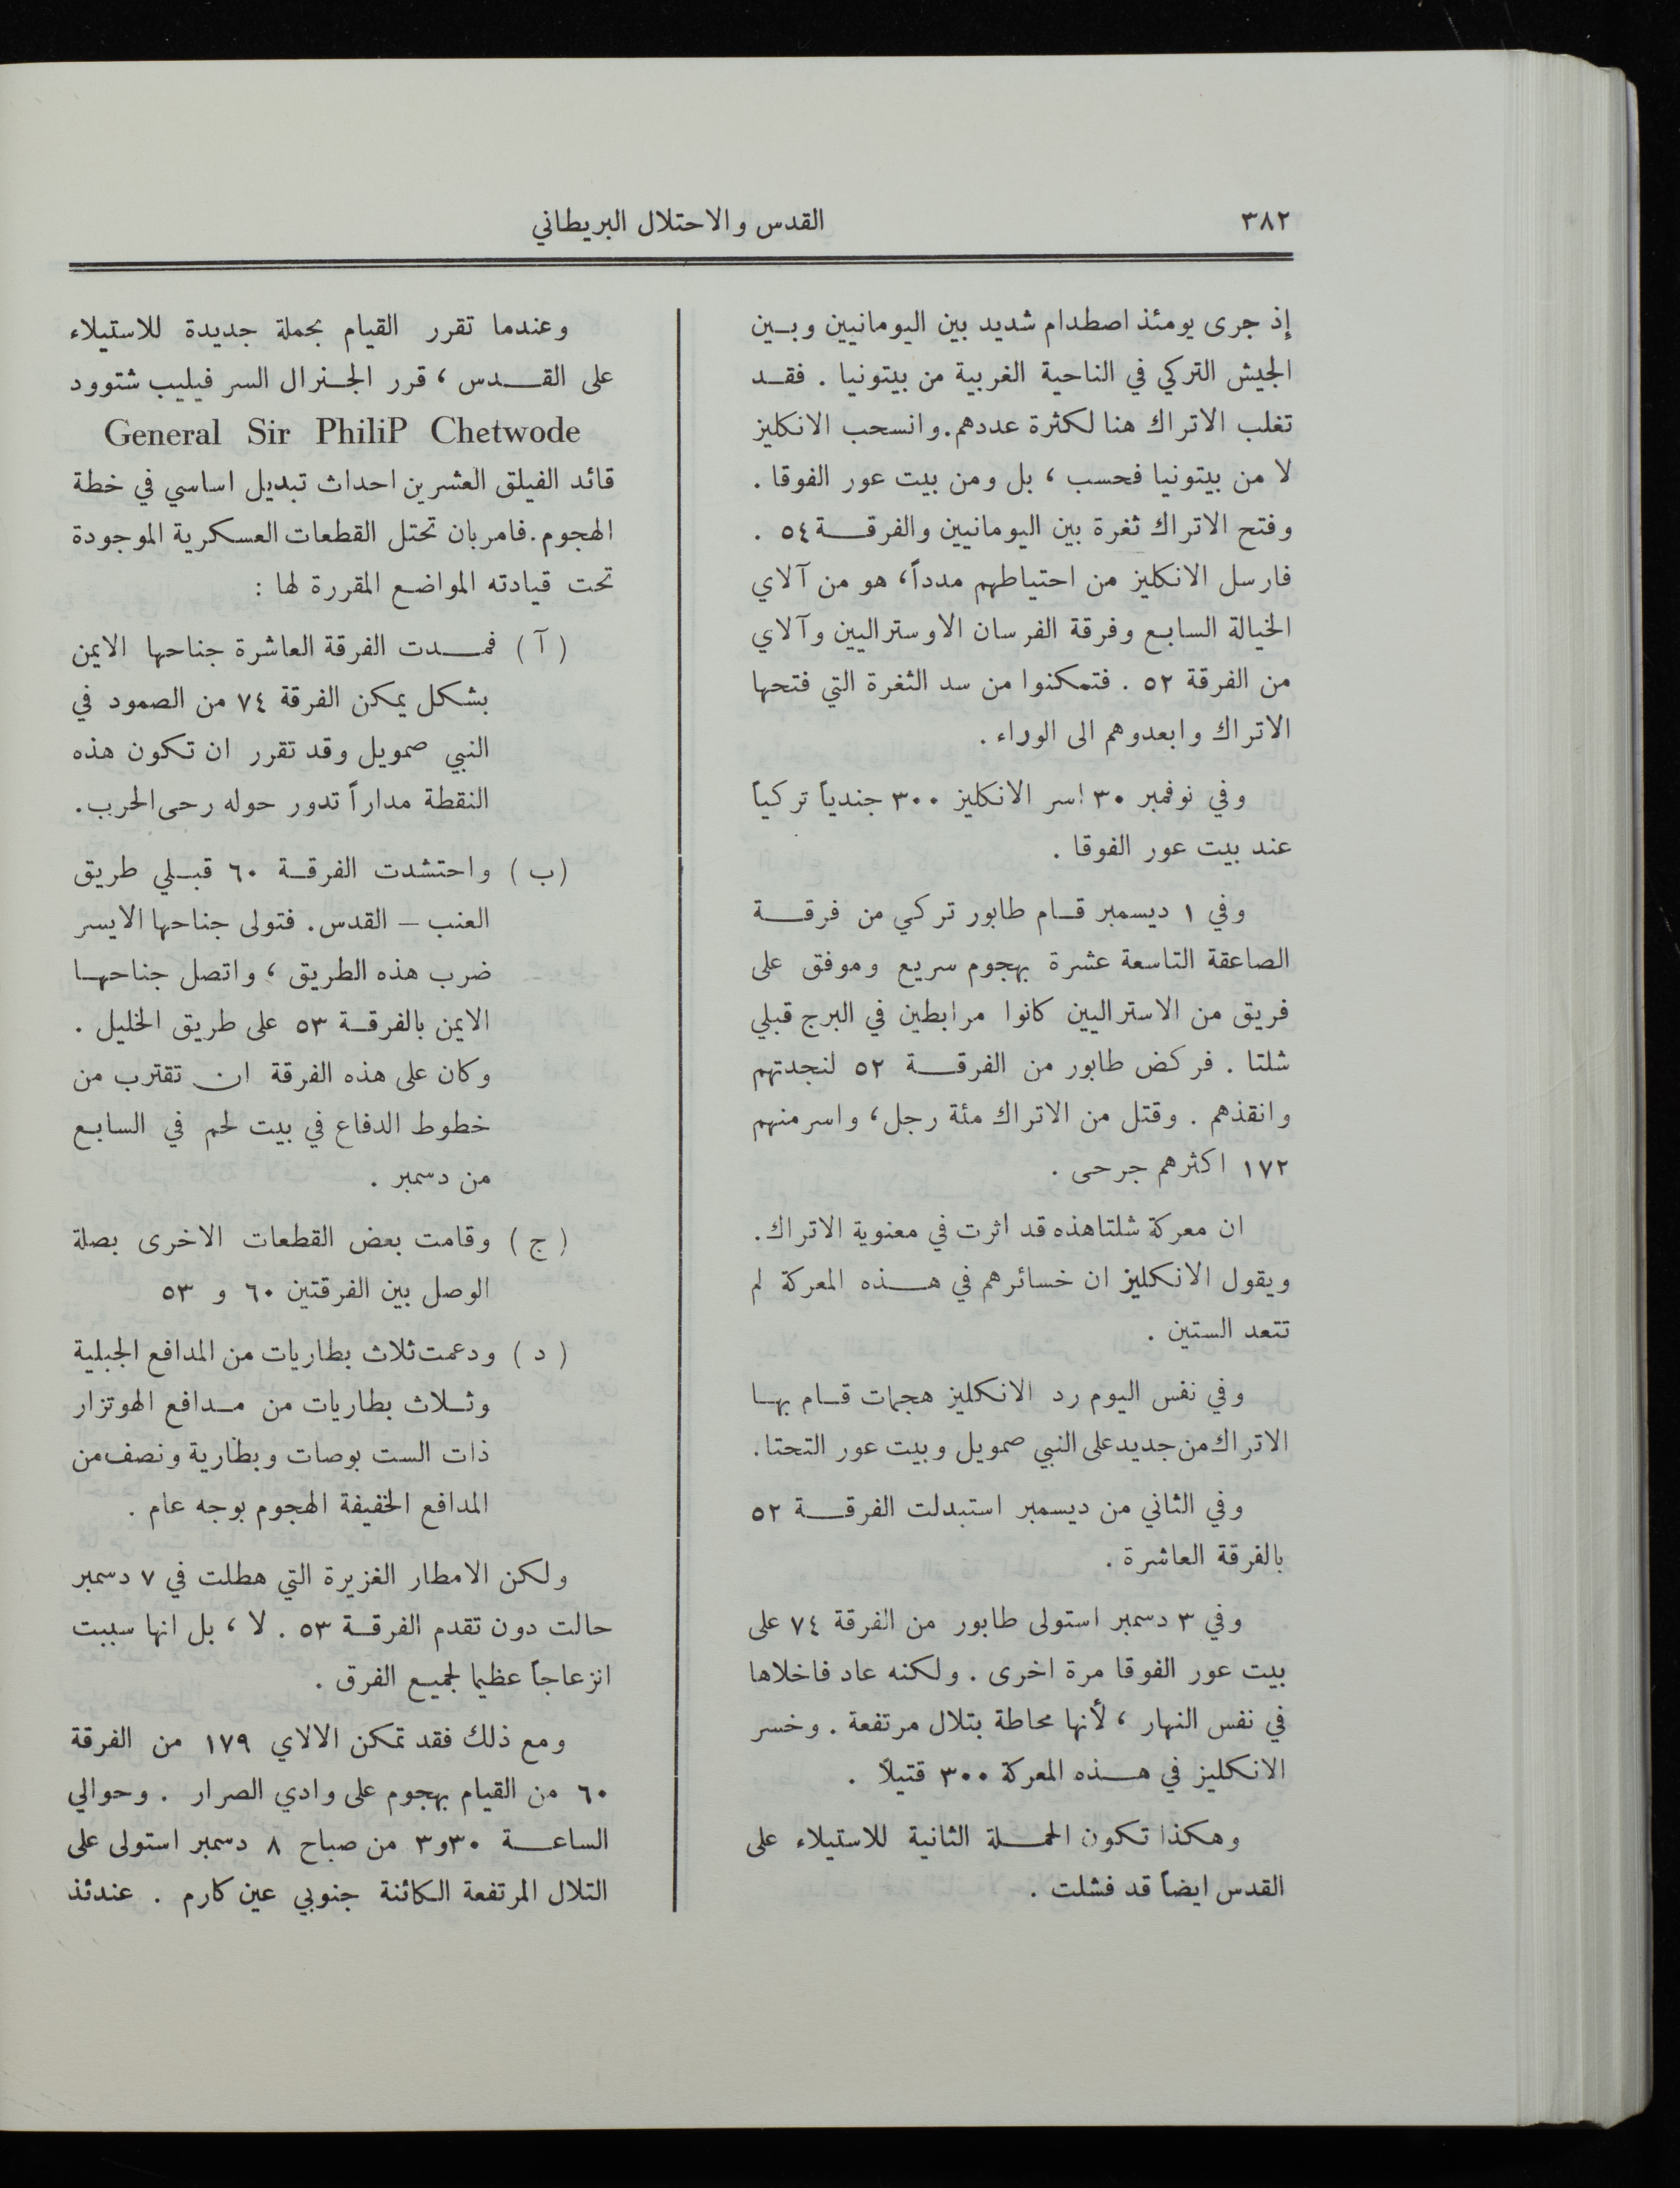 ٣٨٢
القدس والاحتلال البريطاني
إذ جرى يومئذ اصطدام شديد بين اليومانيين وبين
الجيش التركي في الناحية الغربية من بيتونيا . فقد
تغلب الاتراك هنا لكثرة عددهم. وانسحب الانكليز
لا من بيتونيا فحسب ، بل ومن بيت عور الفوقا .
وفتح الاتراك ثغرة بين اليومانيين والفرقة ٥٤ .
فارسل الانكليز من احتياطهم مدداً، هو من آلاي
الخيالة السابع وفرقة الفرسان الاوستراليين وآلاي
من الفرقة ٥٢ . فتمكنوا من سد الثغرة التي فتحها
الاتراك وابعدوهم الى الوراء .
وفي نوفمبر ٣٠ اسر الانكليز ٣٠٠ جندياً تركياً
عند بيت عور الفوقا .
وفي ١ ديسمبر قام طابور تركي من فرقة
الصاعقة التاسعة عشرة بهجوم سريع وموفق على
فريق من الاستراليين كانوا مرابطين في البرج قبلي
شلتا . فركض طابور من الفرقة ٥٢ لنجدتهم
وانقذهم . وقتل من الاتراك مئة رجل، واسر منهم
١٧٢ اكثرهم جرحى .
ان معركة شلتا هذه قد اثرت في معنوية الاتراك.
ويقول الانكليز ان خسائرهم في هذه المعركة لم
تتعد الستين .
وفي نفس اليوم رد الانكليز هجمات قام بها
الاتراك من جديد على النبي صمويل وبيت عور التحتا.
وفي الثاني من ديسمبر استبدلت الفرقة ٥٢
بالفرقة العاشرة .
وفي ٣ دسمبر استولى طابور من الفرقة ٧٤ على
بيت عور الفوقا مرة اخرى . ولكنه عاد فاخلاها
في نفس النهار ، لأنها محاطة بتلال مرتفعة . وخسر
الانكليز في هذه المعركة ٣٠٠ قتيلاً .
وهكذا تكون الحملة الثانية للاستيلاء على
القدس ايضاً قد فشلت .
وعندما تقرر القيام بحملة جديدة للاستيلاء
على القدس ، قرر الجنرال السر فيليب شتوود
General Sir PhiliP Chetwode
قائد الفيلق العشرين احداث تبديل اساسي في خطة
الهجوم. فامر بان تحتل القطعات العسكرية الموجودة
تحت قيادته المواضع المقررة لها :
( آ ) فمدت الفرقة العاشرة جناحها الايمن
بشكل يمكن الفرقة ٧٤ من الصمود في
النبي صمويل وقد تقرر ان تكون هذه
النقطة مداراً تدور حوله رحى الحرب.
(ب) واحتشدت الفرقة ٦٠ قبلي طريق
العنب – القدس. فتولى جناحها الايسر
ضرب هذه الطريق ، واتصل جناحها
الايمن بالفرقة ٥٣ على طريق الخليل .
وكان على هذه الفرقة ان تقترب من
خطوط الدفاع في بيت لحم في السابع
من دسمبر .
( ج ) وقامت بعض القطعات الاخرى بصلة
الوصل بين الفرقتين ٦٠ و ٥٣
( د ) ودعمت ثلاث بطاريات من المدافع الجبلية
وثلاث بطاريات من مدافع الهوتزار
ذات الست بوصات وبطارية ونصف من
المدافع الخفيفة الهجوم بوجه عام .
ولكن الامطار الغزيرة التي هطلت في ٧ دسمبر
حالت دون تقدم الفرقة ٥٣ . لا ، بل انها سببت
انزعاجاً عظيما لجميع الفرق .
ومع ذلك فقد تمكن الالاي ١٧٩ من الفرقة
٦٠ من القيام بهجوم على وادي الصرار . وحوالي
الساعة ٣٠و٣ من صباح ٨ دسمبر استولى على
التلال المرتفعة الكائنة جنوبي عين كارم . عندئذ